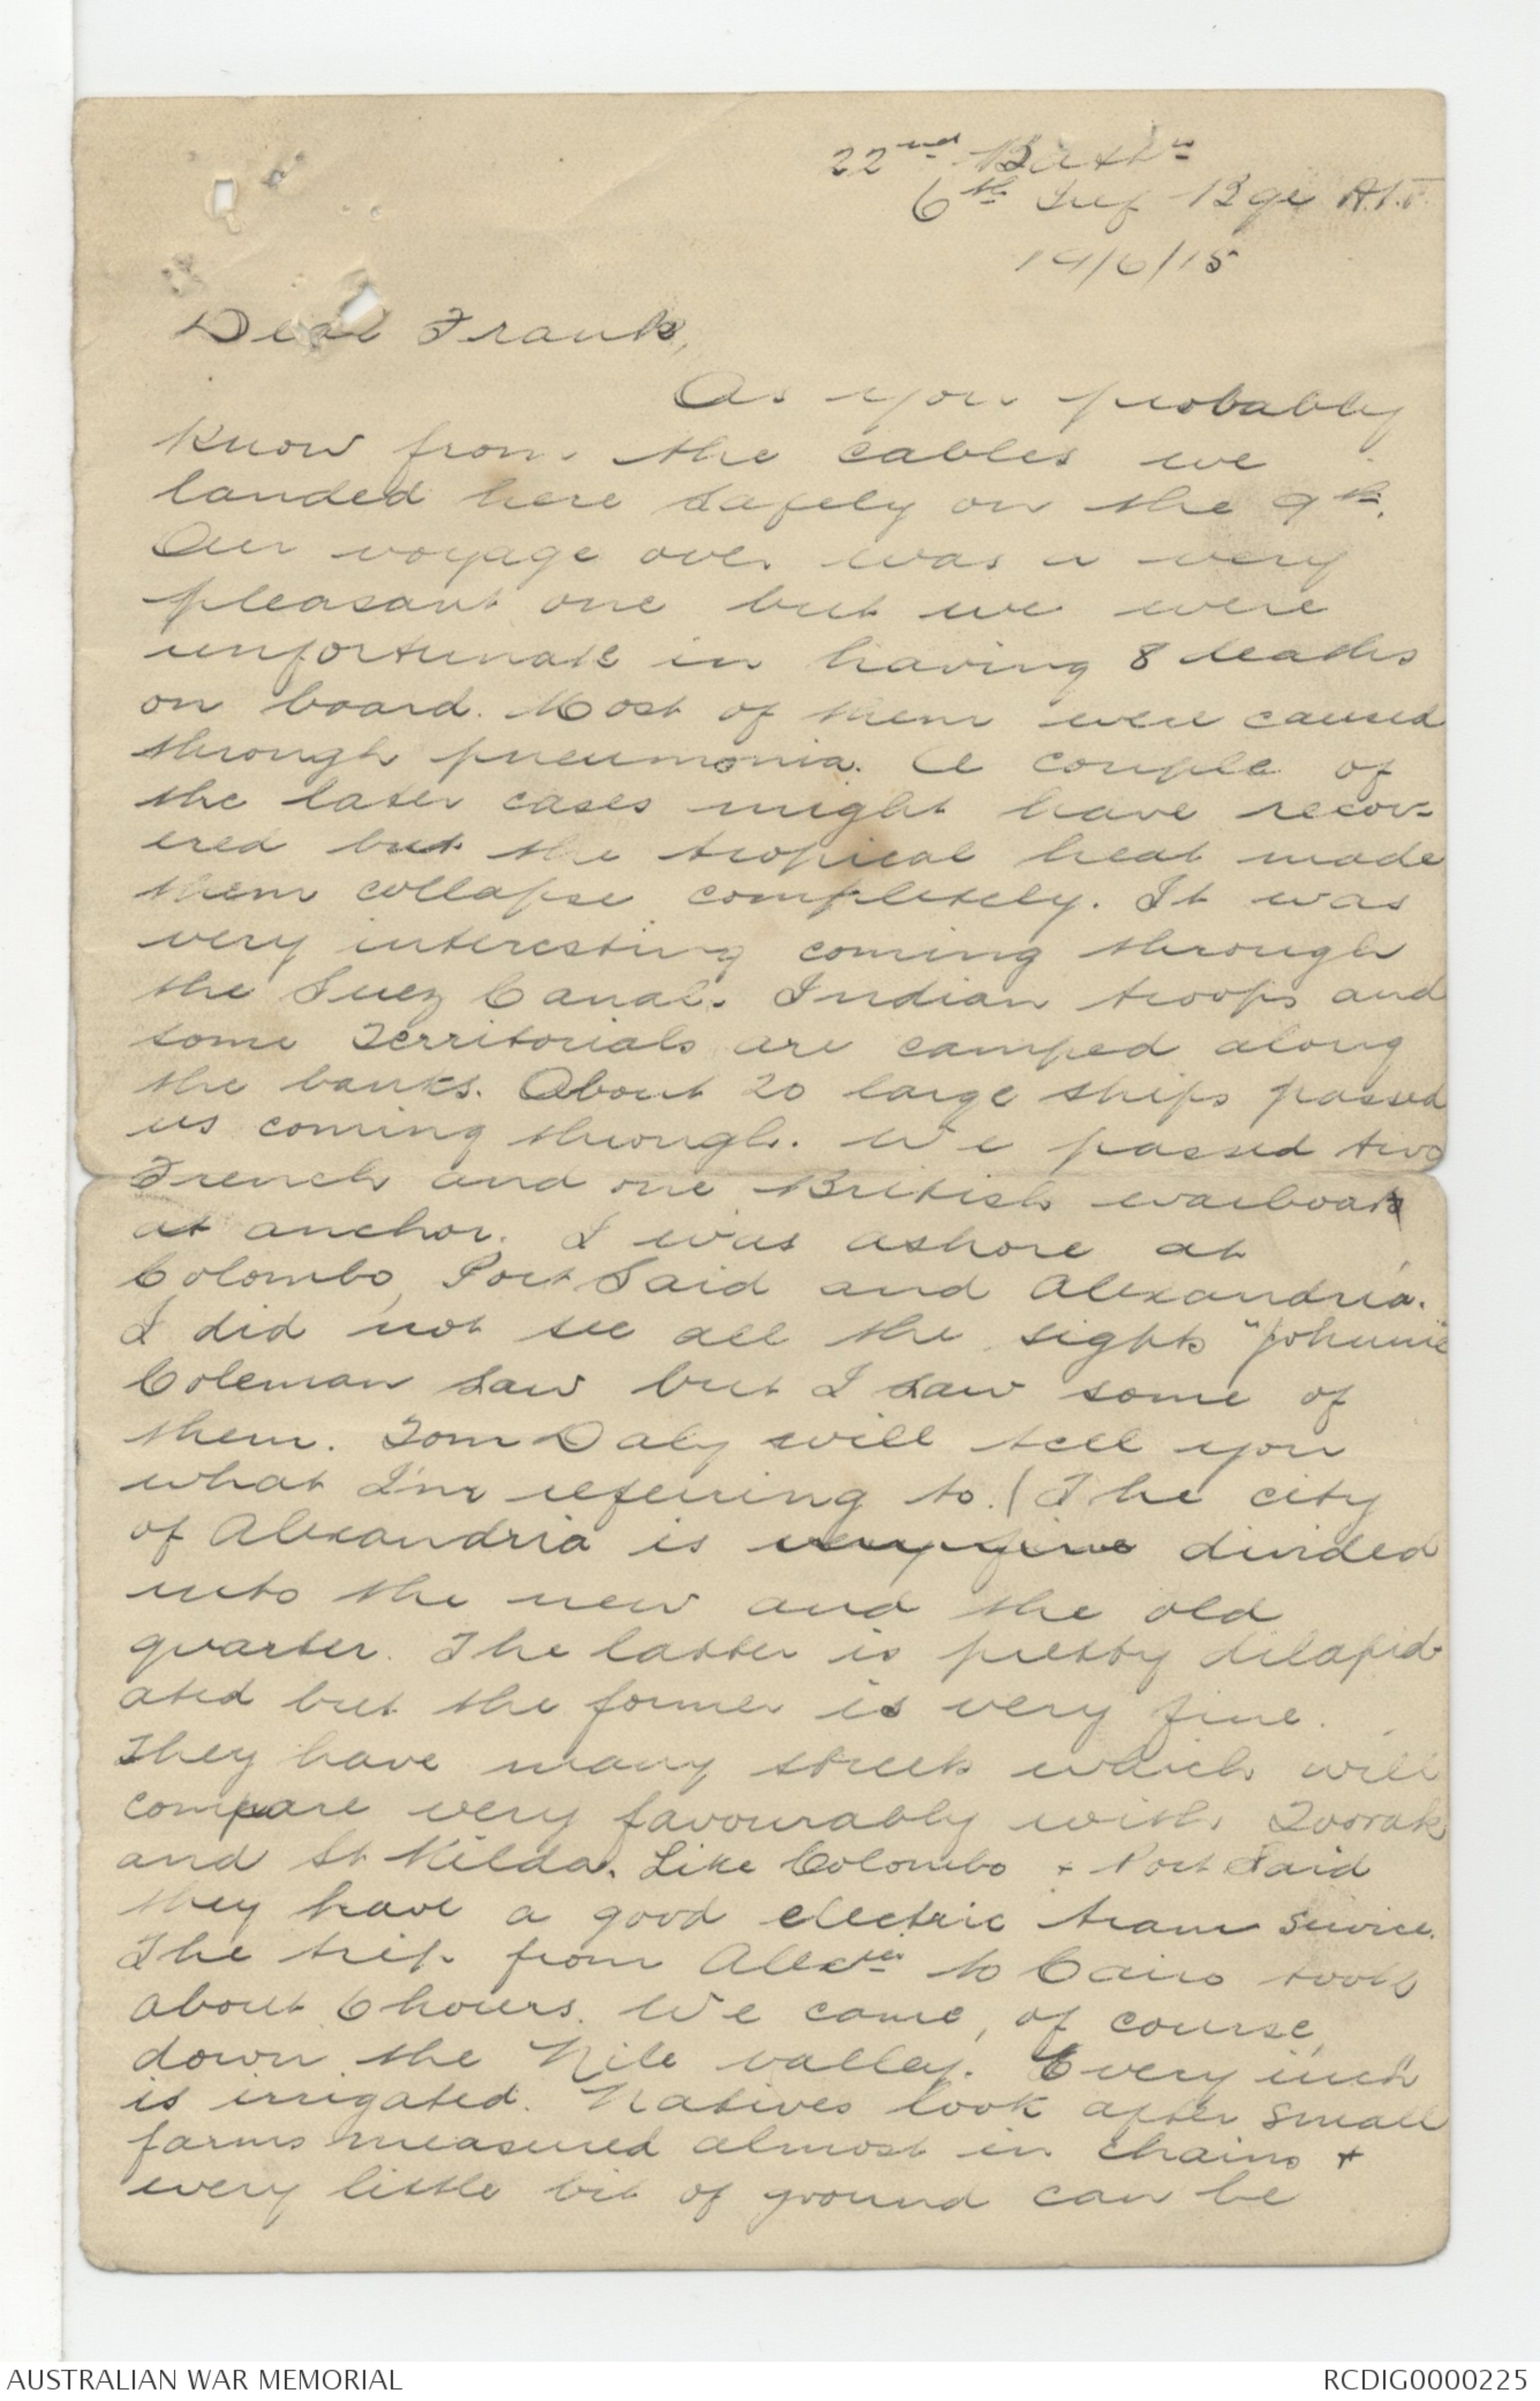 22nd Battn
6th Inf Bge A.I.F.
19/6/15
Dear Frank,
As you probably
know from the cables we
landed here safely on the 9th.
Our voyage over was a very
pleasant one but we were
unfortunate in having 8 deaths
on board. Most of them were caused
through pneumonia. A couple of
the later cases might have recov-
ered but the tropical heat made
them collapse completely. It was
very interesting coming through
the Suez Canal. Indian troops and
some Territorials are camped along
the banks. About 20 large ships passed
us coming through. We passed two
French and one British warboat
at anchor. I was ashore at
Colombo, Port Said and Alexandria.
I did not see all the sights "Johnnie"
Coleman saw but I saw some of
them. Tom Daly will tell you
what I'm referring to. (The city
of Alexandria is very fine divided
into the new and the old
quarter. The latter is pretty dilapid-
ated but the former is very fine.
They have many streets which will
compare very favourably with Toorak
and St Kilda. Like Colombo + Port Said
they have a good electric tram service.
The trip from Alexria to Cairo took
about 6 hours. We came, of course,
down the Nile valley. Every inch
is irrigated. Natives look after small
farms measured almost in chains +
every little bit of ground can be
AUSTRALIAN WAR MEMORIAL
RCDIG0000225